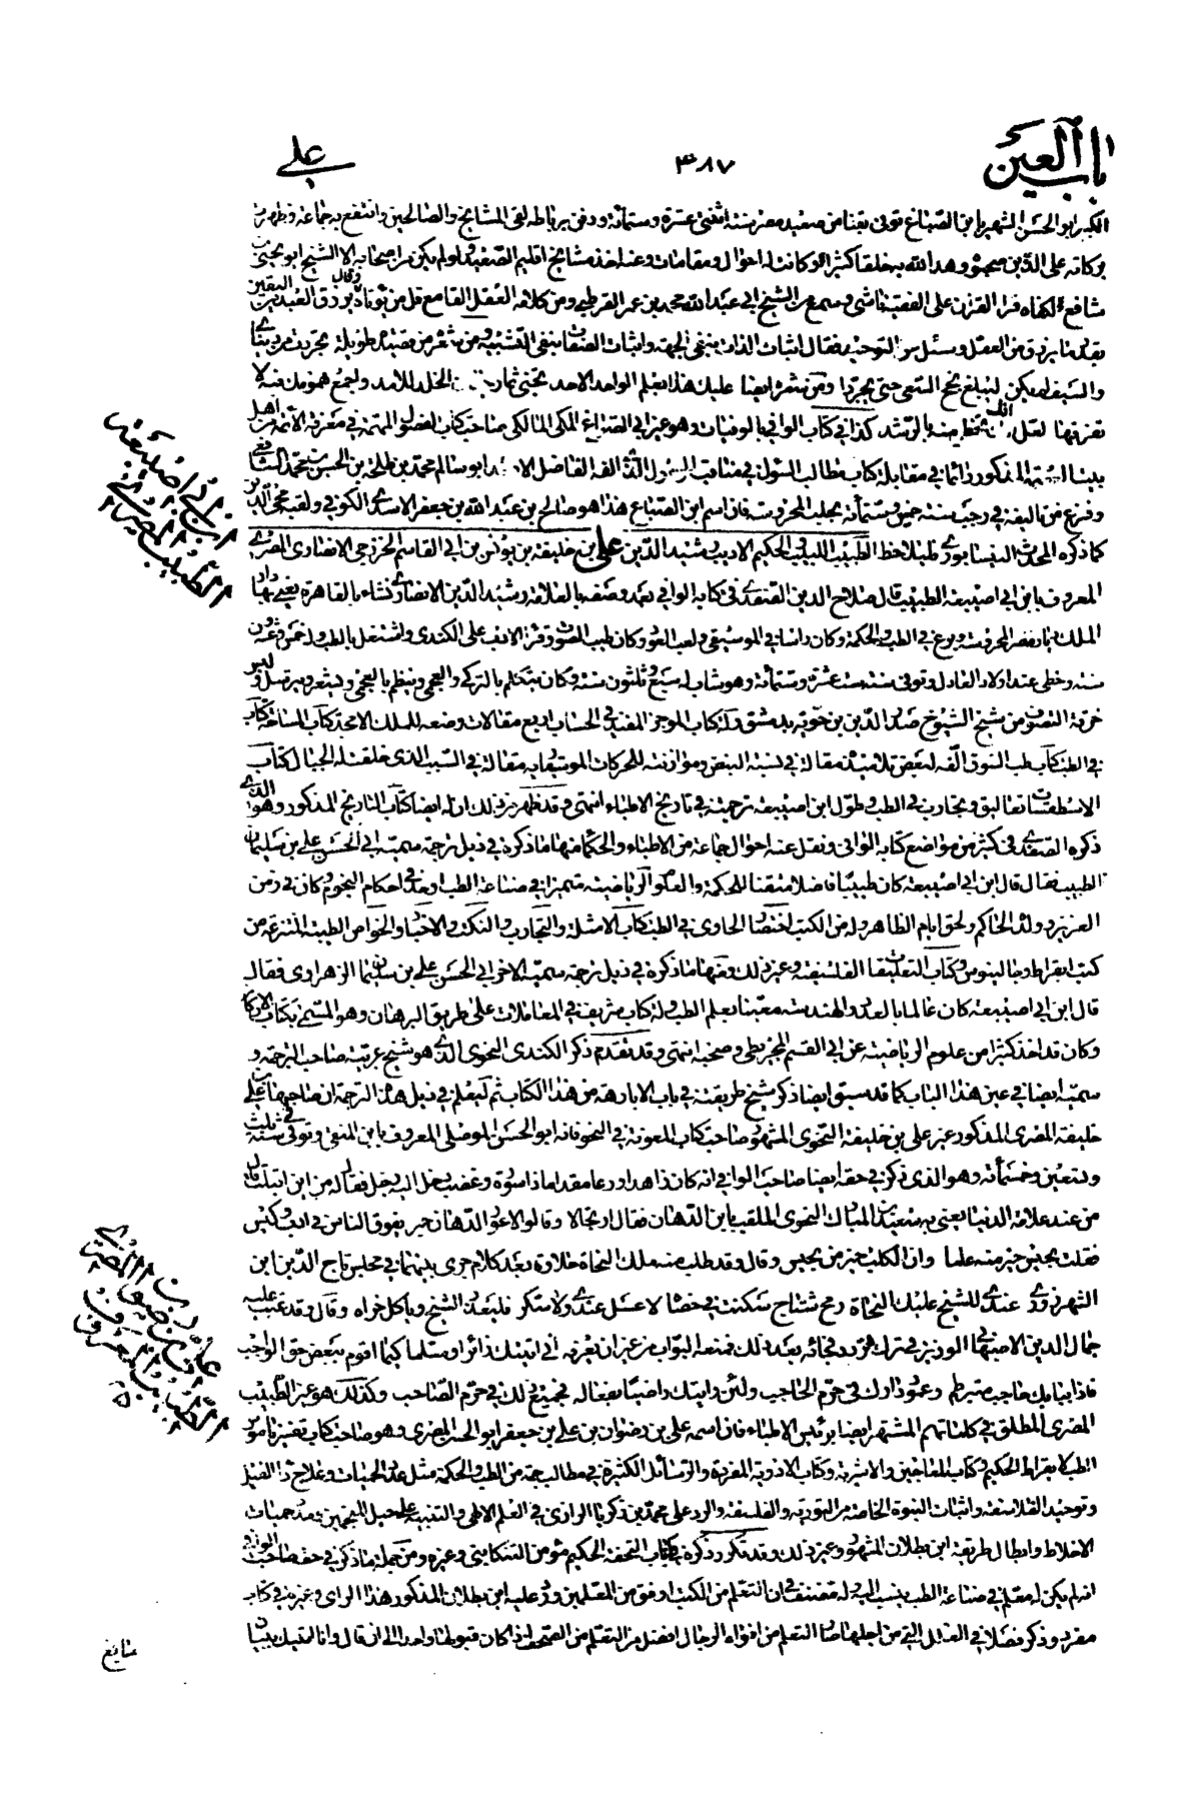 باب العين
٣٨٧
علي
الكبير ابو الحسن الشهير بابن الصباغ توفي بقنا من صعيد مصر سنة اثنتي عشرة وستمائة ودفن برباطه لقي المشايخ والصالحين وانتفع به جماعة وظهرت
بركاته على الذين صحبوه وهدى الله به خلقا كثيرا وكانت له احوال ومقامات وعنه اخذ مشايخ اقليم الصعيد ولو لم يكن من اصحابه الا الشيخ ابو يحيى بن
شافع لكفاه قرأ القرآن على الفقيه ناشي وسمع من الشيخ ابي عبد الله محمد بن عمر القرطبي ومن كلامه العقل القامع قل من يؤتاه وقال يرزق العبد من اليقين
بقدر ما يرزق من العقل وسئل عن التوحيد فقال اثبات الذات بنفي الجهة واثبات الصفات بنفي التشبيه ومن شعره من قصيدة طويلة تجردت من دنياي
والسيف لم يكن ليبلغ نجح السعي حتى يجردا ومن شعره ايضا عليك هذا بعلم الواحد الاحد يجتني ثمار الخلد للأمد واجمع همومك فيه لا
تفرقها لعل انك تحظى منه بالرشد كذا في كتاب الوافي بالوفيات وهو غير ابن الصباغ المكي المالكي صاحب كتاب الفصول المهمة في معرفة الائمة من اهل
بيت المذكور دائما في مقابلة كتاب مطالب السؤل في مناقب آل الرسول الذي الفه الفاضل ابو سالم محمد بن طلحة بن الحسن بن محمد الشافعي
وفرغ من تأليفه في رجب سنة خمس وستمائة بحلب المحروسة فان اسم ابن الصباغ هذا هو صالح بن عبد الله بن جعفر الاسدي الكوفي ولقبه محيي الدين
كما ذكره المحدث النيسابوري فليلاحظ الطبيب اللبيب والحكيم الاديب رشيد الدين علي بن خليفة بن يونس بن ابي القاسم الخزرجي الانصاري المصري
المعروف بابن ابي اصيبعة الطبيب قال صلاح الدين الصفدي في كتابه الوافي بعد وصفه بالعلامة رشيد الدين الانصاري نشأ بالقاهرة يعني بها دار
الملك بديار مصر المحروسة وبرع في الطب والحكمة وكان رأسا في الموسيقى ولعب العود وكان طيب الصوت وقرأ الادب على الكندي واشتغل بالطب وله خمس وعشرون
سنة وحظي عند اولاد العادل وتوفي سنة ست عشرة وستمائة وهو شاب له سبع وثلثون سنة وكان يتكلم بالتركي والعجمي وينظم بالعجمي ويشعر ويترسل ولبس
خرقة التصوف من شيخ الشيوخ صدر الدين بن حمويه بدمشق وله كتاب الموجز المفيد في الحساب اربع مقالات وضعه للملك الامجد وكتاب المساحة كتاب
في الطب كتاب طب السوق الفه لبعض تلاميذه مقالة في نسبة النبض وموازنته للحركات الموسيقارية مقالة في السبب الذي خلقت له الجبال كتاب
الاسطقسات تعاليق وتجارب في الطب وطول ابن اصيبعة ترجمته في تاريخ الاطباء انتهى وقد ظهر من ذلك ان له ايضا كتاب التاريخ المذكور وهو الذي
ذكره الصفدي في كثير من مواضع كتابه الوافي ونقل عنه احوال جماعة من الاطباء والحكماء منها ما ذكره في ذيل ترجمة سميه ابي الحسن علي بن سليمان
الطبيب فقال قال ابن ابي اصيبعة كان طبيبا فاضلا متقنا للحكمة والعلوم الرياضية متميزا في صناعة الطب اوحد في احكام النجوم كان في زمن
العزيز وولده الحاكم ولحق ايام الظاهر وله من الكتب اختصار الحاوي في الطب كتاب الامثلة والتجارب والنكت والاخبار والخواص الطبية المنتزعة من
كتب ابقراط وجالينوس وكتاب التعليقات الفلسفية وغير ذلك ومنها ما ذكره في ذيل ترجمة سميه الاخر ابي الحسن علي بن سليمان الزهراوي فقال
قال ابن ابي اصيبعة كان عالما بالعدد والهندسة معتنيا بعلم الطب وله كتاب شريف في المعاملات على طريق البرهان وهو المسمى بكتاب الاركان
وكان قد اخذ كثيرا من علوم الرياضية عن ابي القسم المجريطي وصحبه انتهى وقد تقدم ذكر الكندي النحوي الذي هو شيخ عربية صاحب الترجمة و
سميه ايضا في عين هذا الباب كما قد سبق ايضا ذكر شيخ طريقته في باب الاباره من هذا الكتاب ثم ليعلم في ذيل هذه الترجمة ان صاحبها علي بن
خليفة المصري المذكور غير علي بن خليفة النحوي المشهور صاحب كتاب المعونة في النحو فانه ابو الحسن الموصلي المعروف بابن المنقى وتوفي سنة ثلث
وتسعين وخمسمأة وهو الذي ذكر في حقه ايضا صاحب الوافي انه كان زاهدا ورعا مقداما ذا سورة وغضب دخل اليه رجل فقال من اين اتيت قال
من عند علامة الدنيا يعني به سعيد بن المبارك النحوي الملقب بابن الدهان فقال ارتجالا وقالوا الاعور الدهان حبر يفوق الناس في ادب وكيس
فقلت بحيس خير منه علما وان الكلب خير من بحيس وقال وقد طلب منه ملك النحاة حلاوة بعد كلام جرى بينهما في مجلس تاج الدين ابن
الشهرزوري عندي للشيخ عليك النحاة رمح شناج سكنت في خصا لا عسل عندي ولا سكر فليعذر الشيخ ويأكل خراه وقال وقد عتب عليه
جمال الدين الاصبهاني الوزير في ترك تردده فجائه بعد ذلك فمنعه البواب من غير ان يعرفه اني اتيتك زائرا ومسلما كيما اقوم ببعض حق الواجب
فاذا ببابك حاجب متبرطم وعمود دارك في حرم الحاجب ولئن رأيتك راضيا بفعاله فجميع ذلك في حرم الصاحب وكذلك هو غير الطبيب
المصري المطلق في كلماتهم المشتهر ايضا برئيس الاطباء فان اسمه علي بن رضوان بن علي بن جعفر ابو الحسن المصري وهو صاحب كتاب تفسير ناموس
الطب لابقراط الحكيم وكتاب المعاجين والاشربة وكتاب الادوية المفردة والرسائل الكثيرة في مطالب جمة من الطب والحكمة مثل علاج الحميات وعلاج داء الفيل
وتوحيد الفلاسفة واثبات النبوة الخاصة من التورية والفلسفة والرد على محمد بن زكريا الرازي في العلم الالهي والتنبيه على حيل المنجمين وحميات
الاخلاط وابطال طريقة ابن بطلان المشهور وغير ذلك وقد تكرر ذكره في كتاب التحفة الحكيم مؤمن التنكابني وغيره ومن جملة ما ذكر في حقه صاحب الوافي
انه لم يكن له معلم في صناعة الطب ينسب اليه وله مصنف في ان التعلم من الكتب اوفق من المعلمين ورد عليه ابن بطلان المذكور هذا الرأي وغيره في كتاب
مفرد وذكر فصلا في العلل التي من اجلها صار التعلم من افواه الرجال افضل من التعلم من الصحف اذا كان قبولهما واحدا الى ان قال وانا آتيك ببيان
ابن ابي اصيبعة
الطبيب المصري
علي بن رضوان المصري
الطبيب المعروف